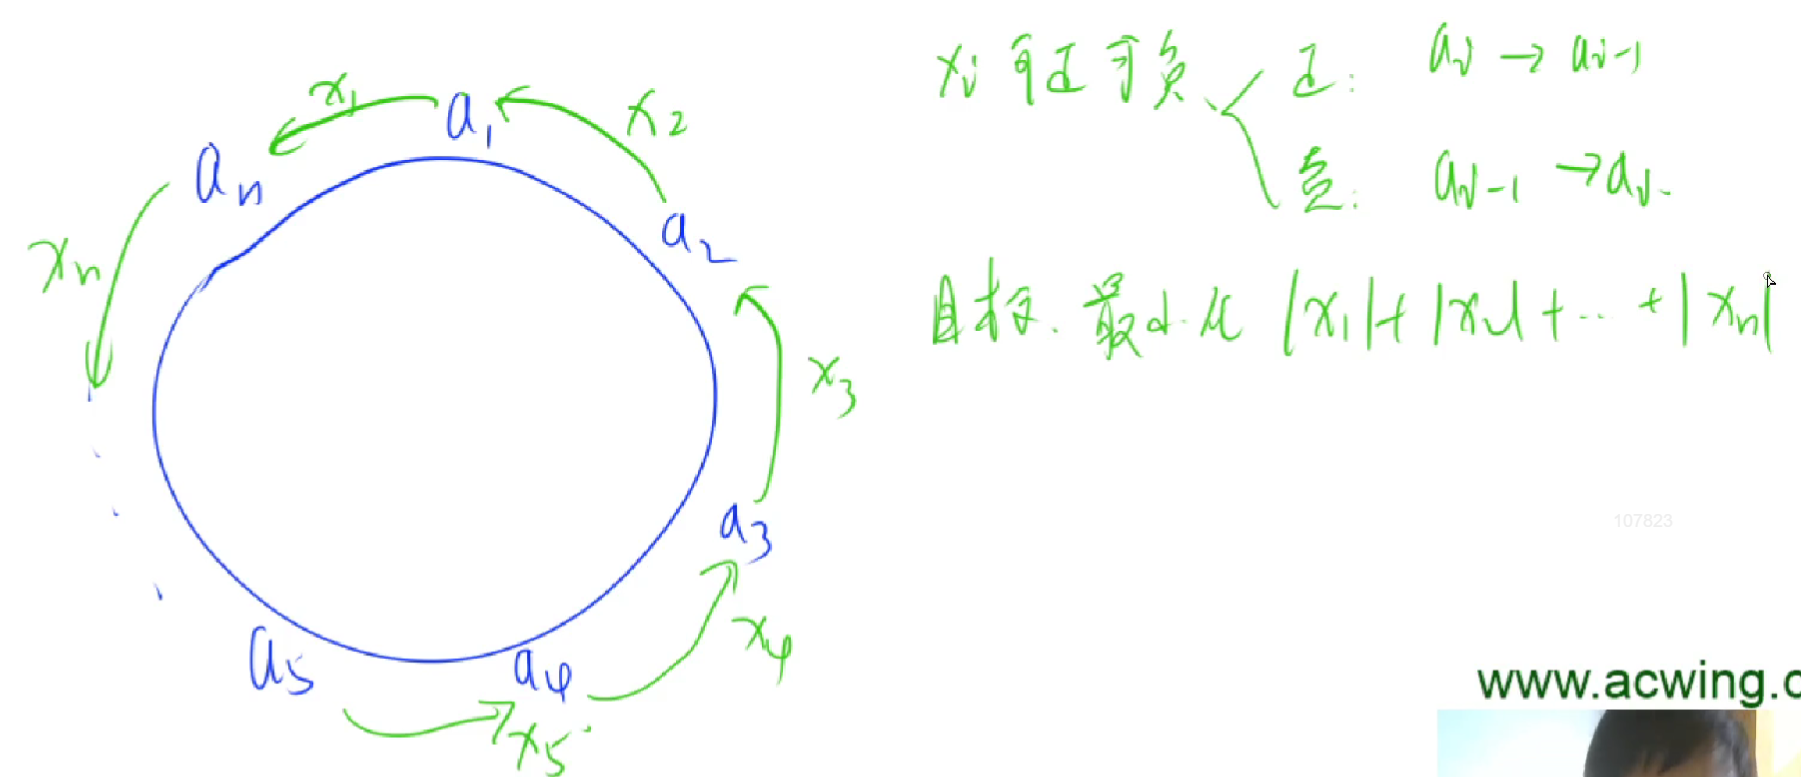 x₁
a₁
x₂
aₙ
a₂
xₙ
x₃
a₃
x₄
a₅
a₄
x₅
xᵢ 可正可负
正: aᵢ → aᵢ₋₁
负: aᵢ₋₁ → aᵢ
目标. 最小化 |x₁|+|x₂|+...+|xₙ|
107823
www.acwing.c